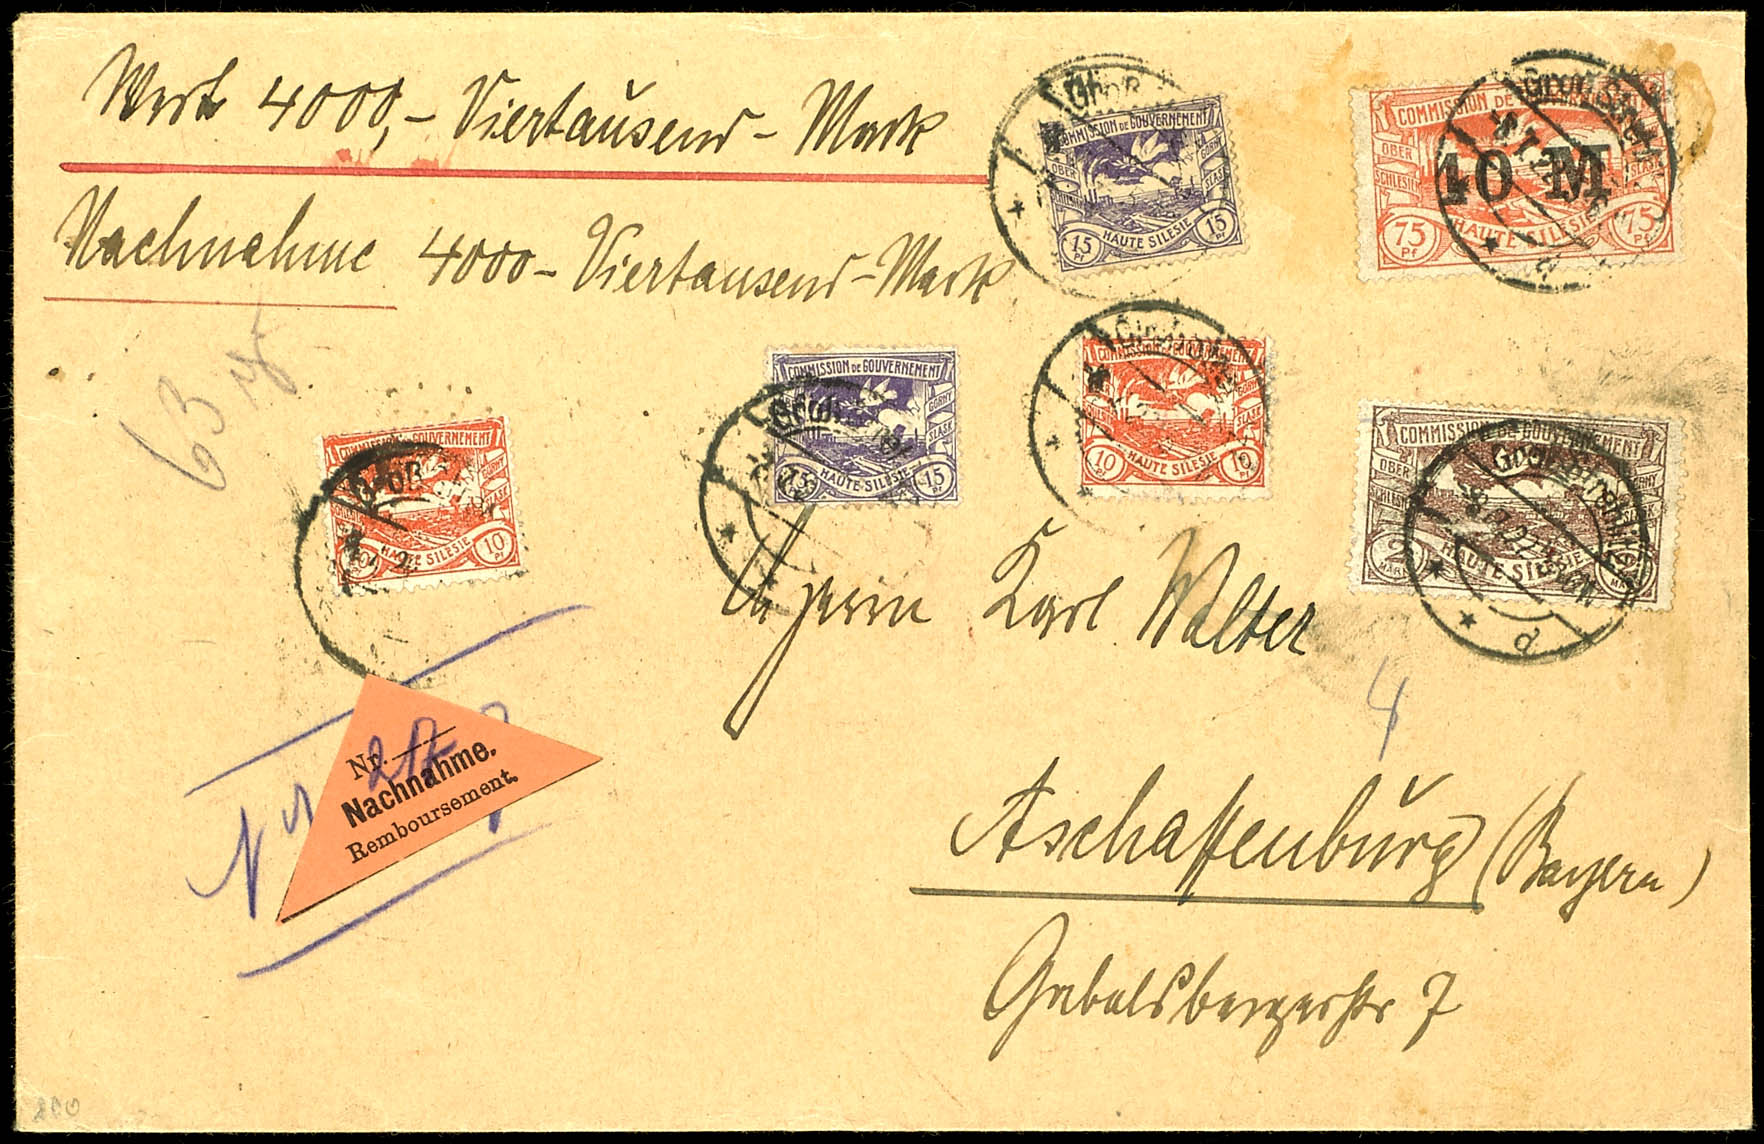 Wert 4000,- Viertausend - Mark
Nachnahme 4000 - Viertausend - Mark
COMMISSION DE GOUVERNEMENT
OBER
GÓRNY
ŚLĄSK
15 Pf
HAUTE SILESIE
15 Pf
COMMISSION DE
OBER
SCHLESIEN
ŚLĄSK
10 M
75 Pf
HAUTE SILESIE
75 Pf
COMMISSION DE GOUVERNEMENT
GÓRNY
ŚLĄSK
15
HAUTE SILESIE
15 Pf
COMMISSION DE GOUVERNEMENT
GÓRNY
ŚLĄSK
10 Pf
HAUTE SILESIE
10
COMMISSION DE GOUVERNEMENT
GÓRNY
ŚLĄSK
HAUTE SILESIE
10 Pf
COMMISSION DE GOUVERNEMENT
OBER
SCHLESIEN
GÓRNY
ŚLĄSK
2 MARK
HAUTE SILESIE
Groß
d
Herrn Karl Walter
Nr.
Nachnahme.
Remboursement.
Aschaffenburg (Bayern)
Gabelsbergerstr 7